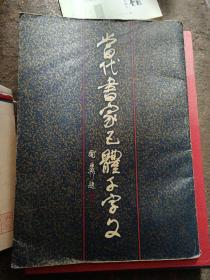 當代書家五體千字文